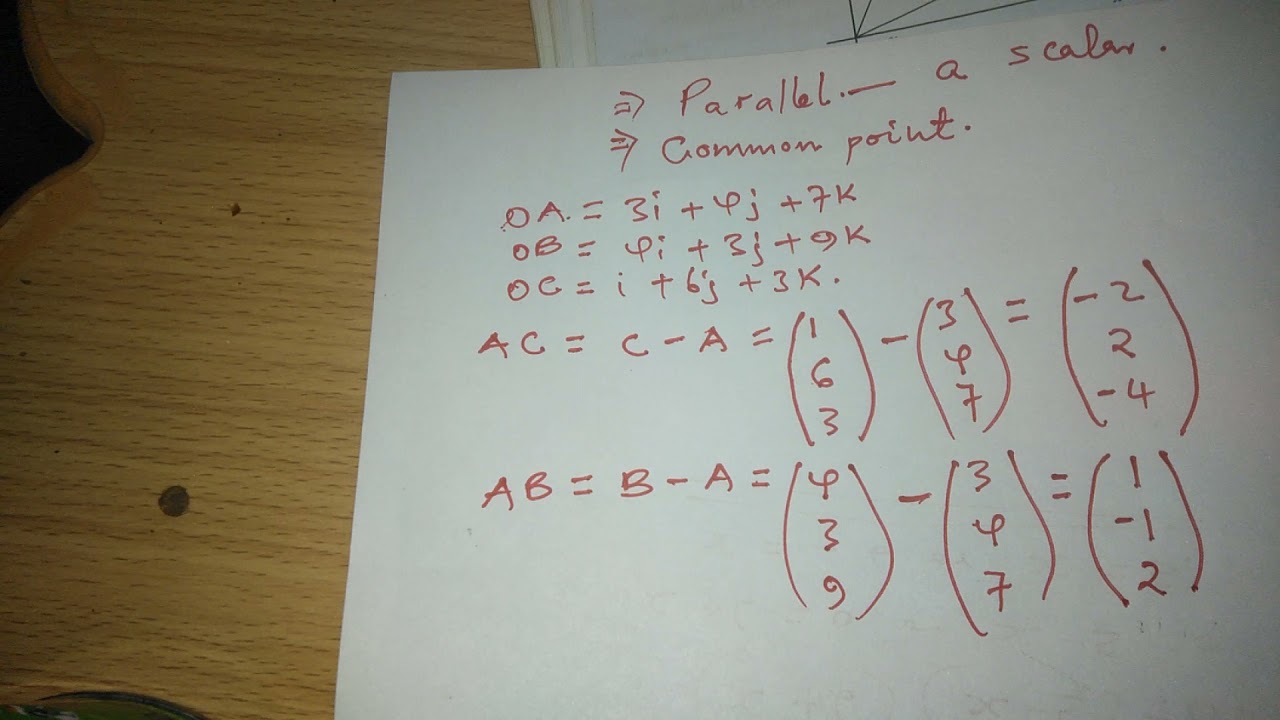 ⇒ Parallel. — a scalar.
⇒ Common point.
OA. = 3i + 4j + 7K
OB = 4i + 3j + 9K
OC = i + 6j + 3K.
AC = C - A = (1 6 3) - (3 4 7) = (-2 2 -4)
AB = B - A = (4 3 9) - (3 4 7) = (1 -1 2)